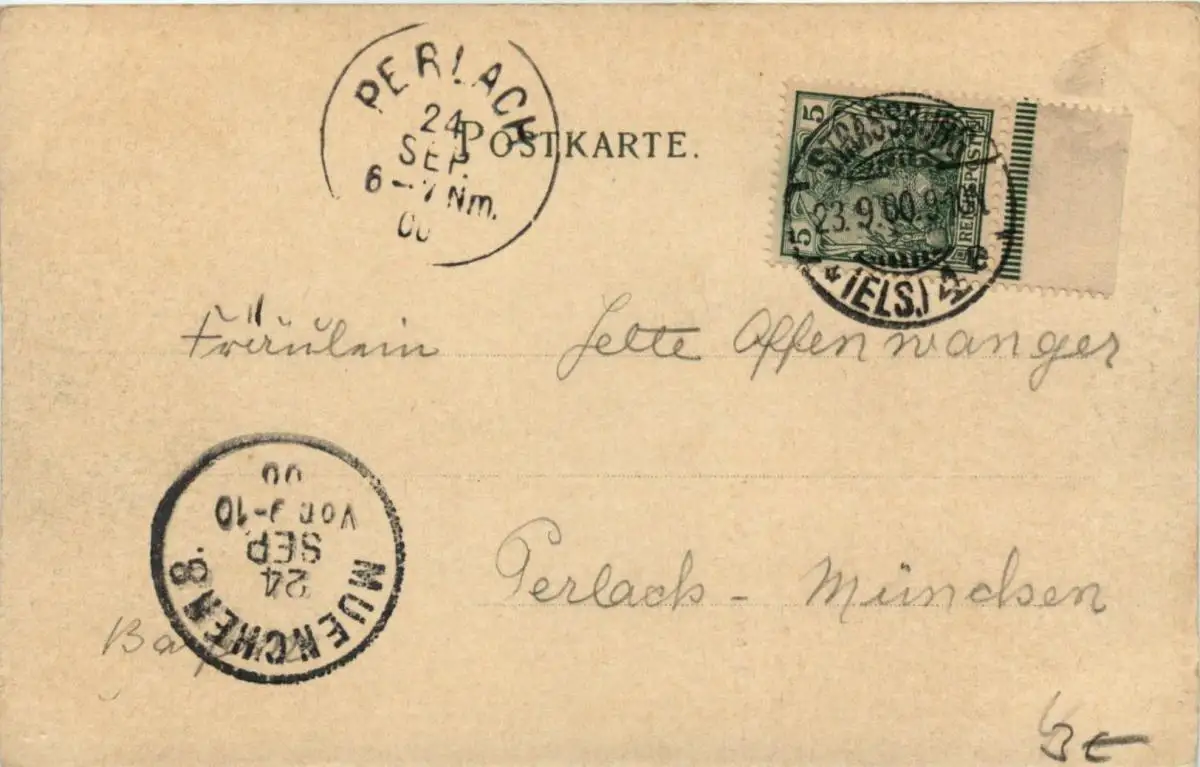 PERLACH
24
SEP.
6-7 Nm.
00
POSTKARTE.
5
5
REICHSPOST
STRASSBURG
23.9.00.
(ELS.)
Fräulein Jette Offenwanger
MUENCHEN 8.
24
SEP.
Vor. 9-10
00
Perlach - München